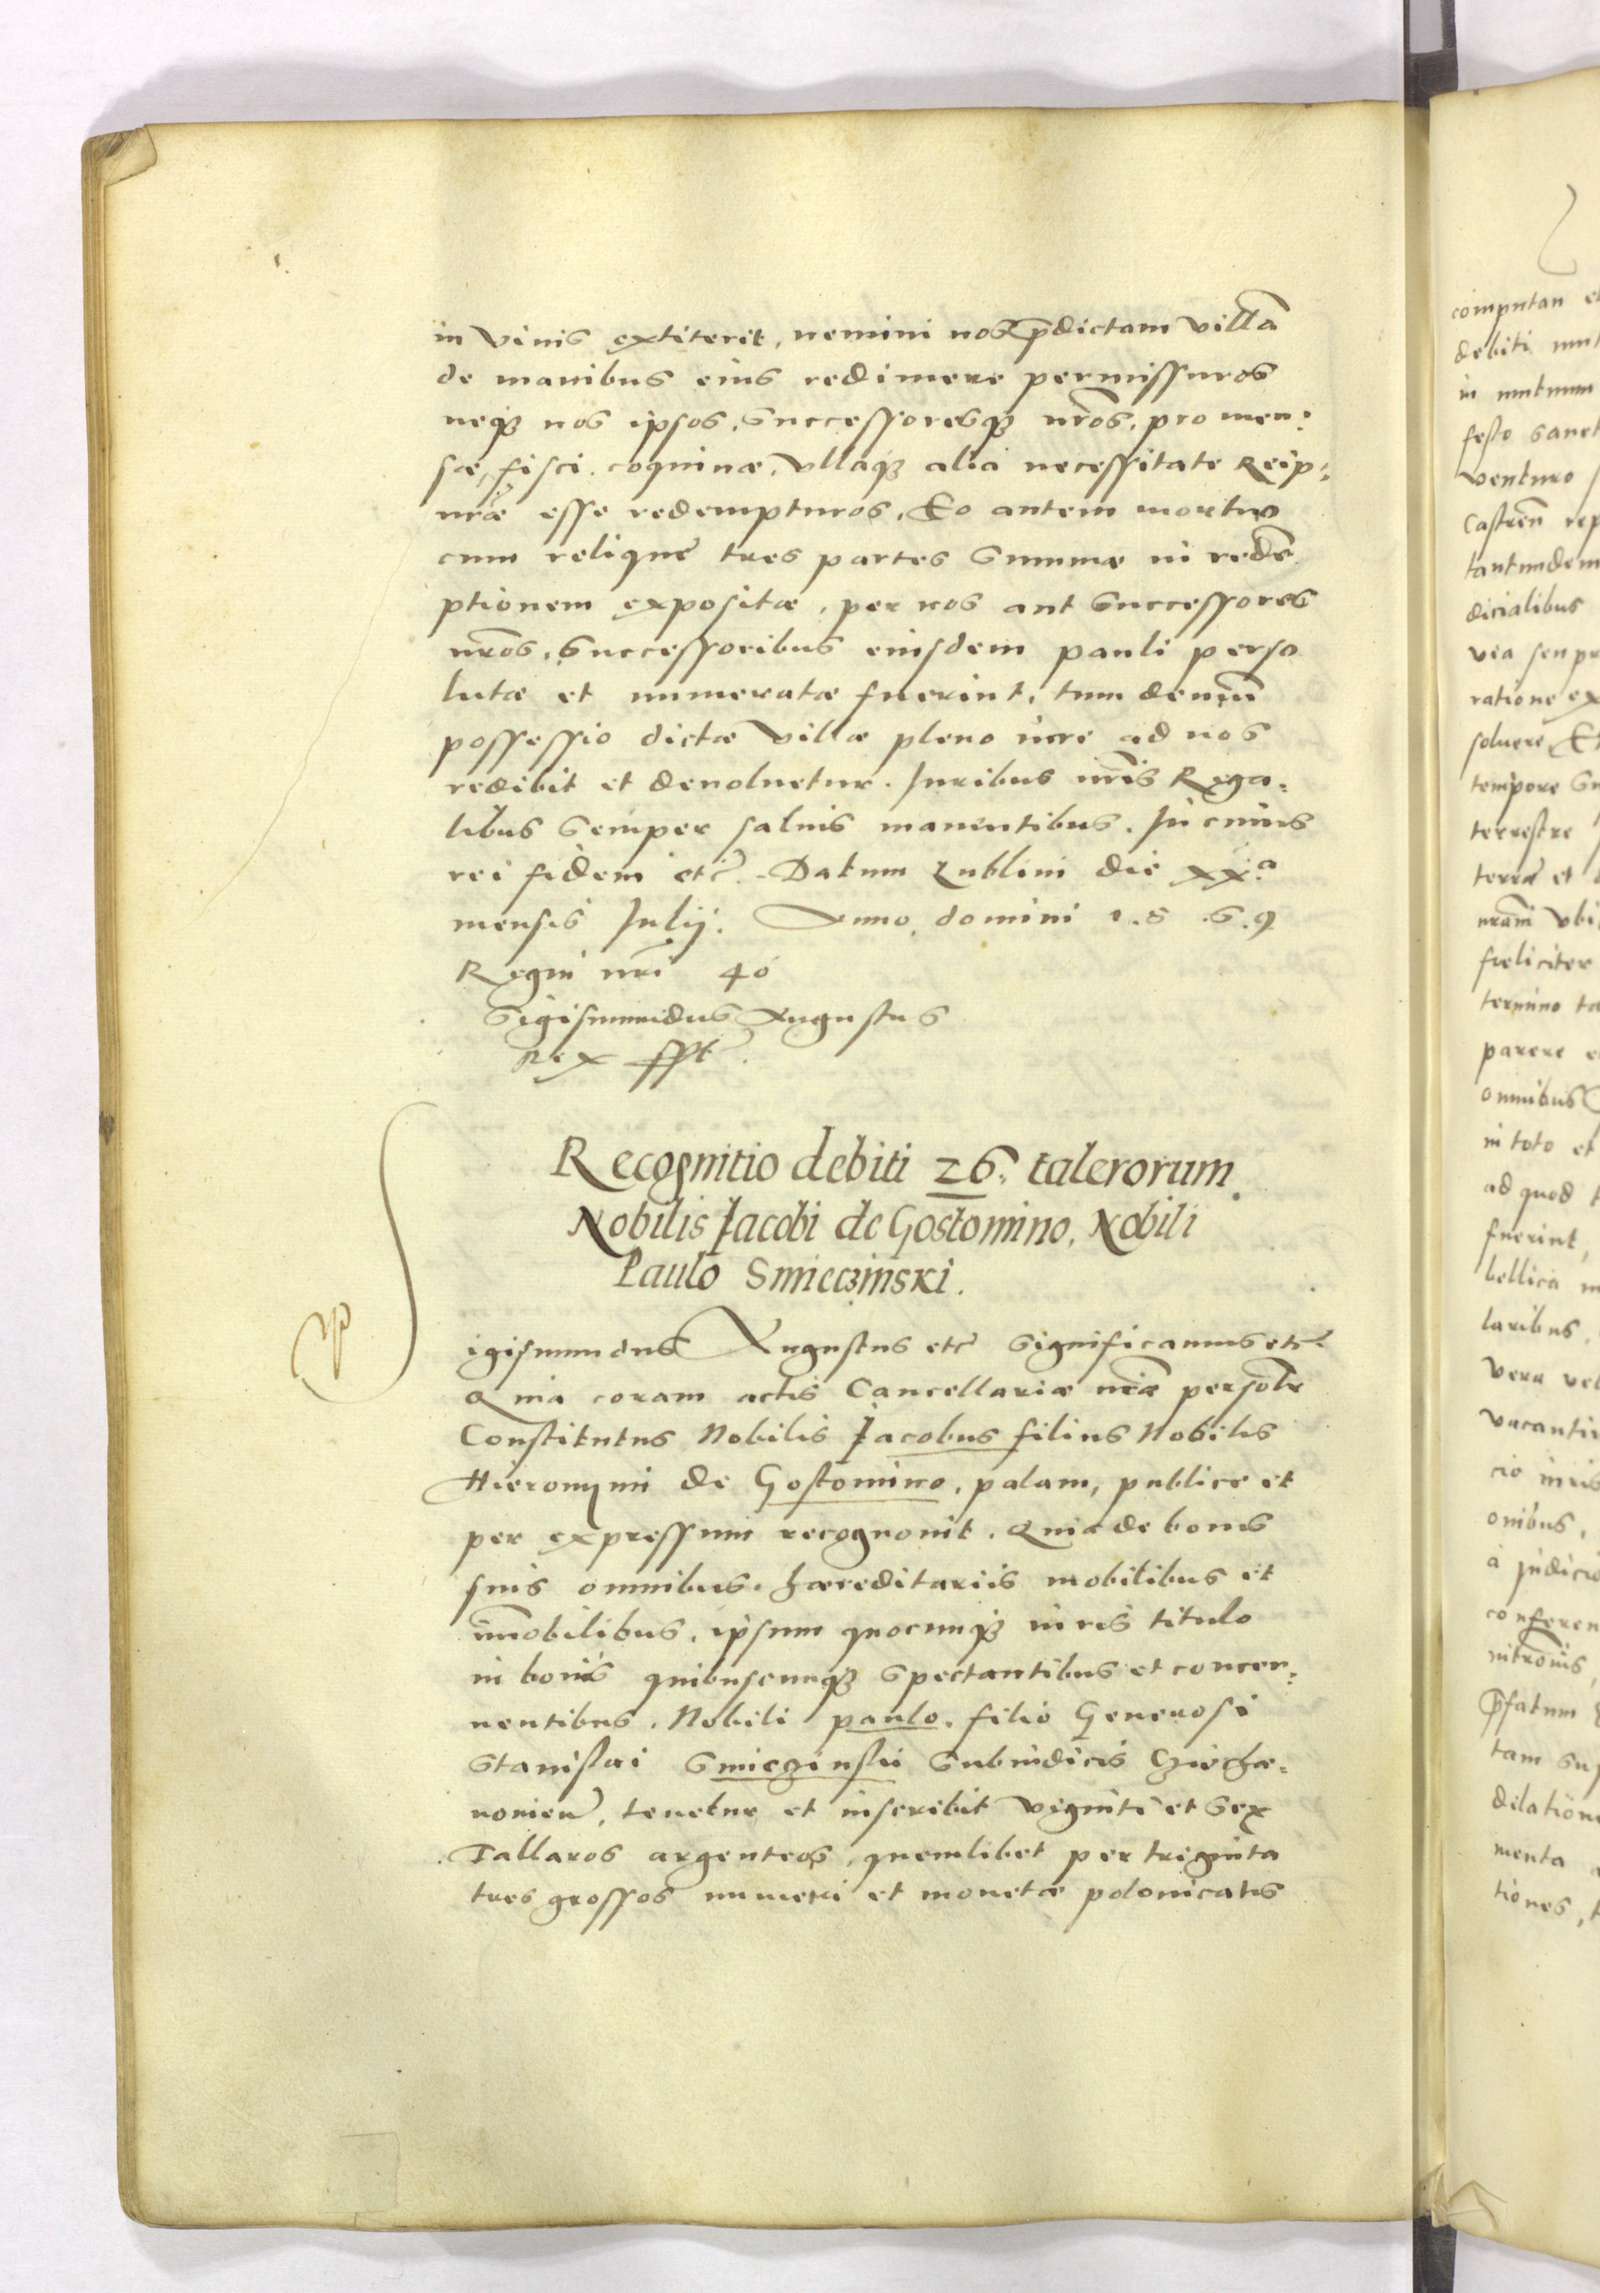 in vivis extiterit, nemini nos p̄dictam villā
de manibus eius redimere permissuros
neqꝫ nos ipsos, Successoresqꝫ nr̄os, pro men:
sæ, fisci coquinæ, vllaqꝫ alia necessitate Reip:
nr̄æ esse redempturos. Eo autem mortuo
cum reliquæ tres partes Summæ in redē
ptionem expositæ, per nos aut Successores
nr̄os, Successoribus eiusdem pauli perso
lutæ et numeratæ fuerint, tum demū
possessio dictæ villæ pleno iure ad nos
redibit et devoluetur. Juribus nr̄is Rega:
libus Semper saluis manentibus. In cuius
rei fidem etc̄. Datum Lublini die xx.a
mensis Julij. Anno domini 1.5.6.9
Regni nr̄i 40
Sigismundus Augustus
Rex sspt.
Recognitio debiti 26. talerorum
Nobilis Jacobi de Gostomino, Nobili
Paulo Smieczinski.
Sigismundus Augustus etc̄ Significamus etc̄.
Quia coram actis Cancellariæ nr̄æ personlr
Constitutus Nobilis Jacobus filius Nobilis
Hieronymi de Gostomino, palam, publice et
per expressum recognouit. Quia de bonis
suis omnibus, hæreditariis mobilibus et
im̄obilibus, ipsum quocunqꝫ iuris titulo
in bonis quibuscunqꝫ Spectantibus et concer:
nentibus, Nobili paulo, filio Generosi
Stanislai Smieczinskii Subiudicis Cziechæ:
nonien̄, tenetur et inscribit viginti et Sex
Tallaros argenteos, quemlibet per triginta
tres grossos numeri et monetæ polonicalis
computan et
debiti
in mutuum
festo Sanct
venturo
Castren̄ rep
tantundem
dicialibus
via seu pr
ratione ex
soluere, Et
tempore
terrestre
terræ et
nram̄ vbi
fæliciter
termino ta
parere e
omnibus
in toto et
ad quod t
fuerint,
bellica
laribus,
Vera vel
vacanti
cio iuris
onibus,
à judicio
conferen
p̄fatum
tam Sup
dilation
menta
tiones,